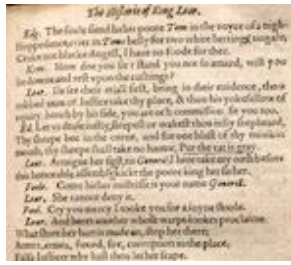 The Historie of King Lear.
Edg. The foule fiend haunts poore Tom in the voyce of a nigh-
Hoppedance cries in Toms belly for two white herring,
Croke not blacke Angell, I haue no foode for thee.
Kent. How doe you sir? stand you not so amazd, will you
lie downe and rest vpon the cushings?
Lear. Ile see their triall first, bring in their euidence, thou
robbed man of Iustice take thy place, & thou his yokefellow of
equity, bench by his side, you are of'h commission, sit you too.
Ed. Let vs deale iustly sleepest or wakest thou iolly shepheard,
Thy sheepe bee in the corne, and for one blast of thy minikin
mouth, thy sheepe shall take no harme, Pur the cat is gray.
Lear. Arraigne her first tis Gonorill I here take my oath before
this honorable assembly kickt the poore king her father.
Foole. Come hither mistrisse is your name Gonorill.
Lear. She cannot deny it.
Fool. Cry you mercy I tooke you for a ioyne stoole.
Lear. And heres another whose warpt lookes proclaime,
What store her hart is made an, stop her there,
Armes, armes, sword, fire, corruption in the place,
False Iusticer why hast thou let her scape.